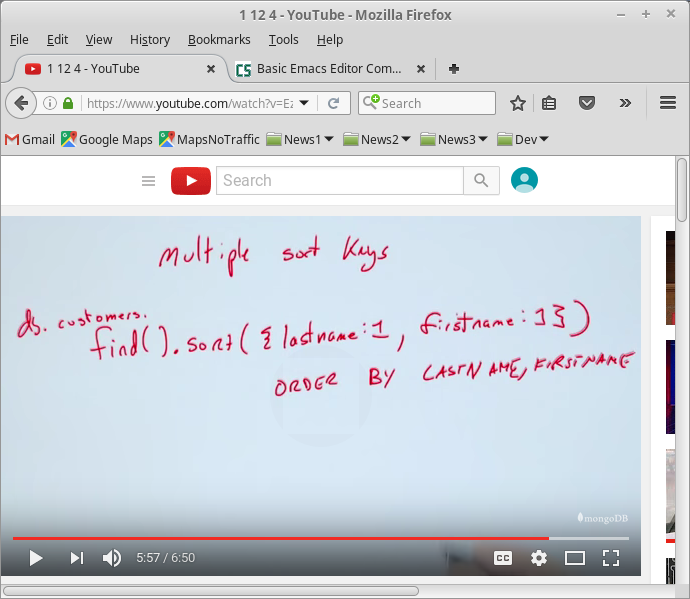 1 12 4 - YouTube - Mozilla Firefox
File Edit View History Bookmarks Tools Help
1 12 4 - YouTube
Basic Emacs Editor Com...
https://www.youtube.com/watch?v=Ez
Search
Gmail Google Maps MapsNoTraffic News1 News2 News3 Dev
Search
Multiple sort Keys
db. customers.
find().sort({lastname:1, firstname:1})
ORDER BY LASTNAME, FIRSTNAME
mongoDB
5:57 / 6:50
CC